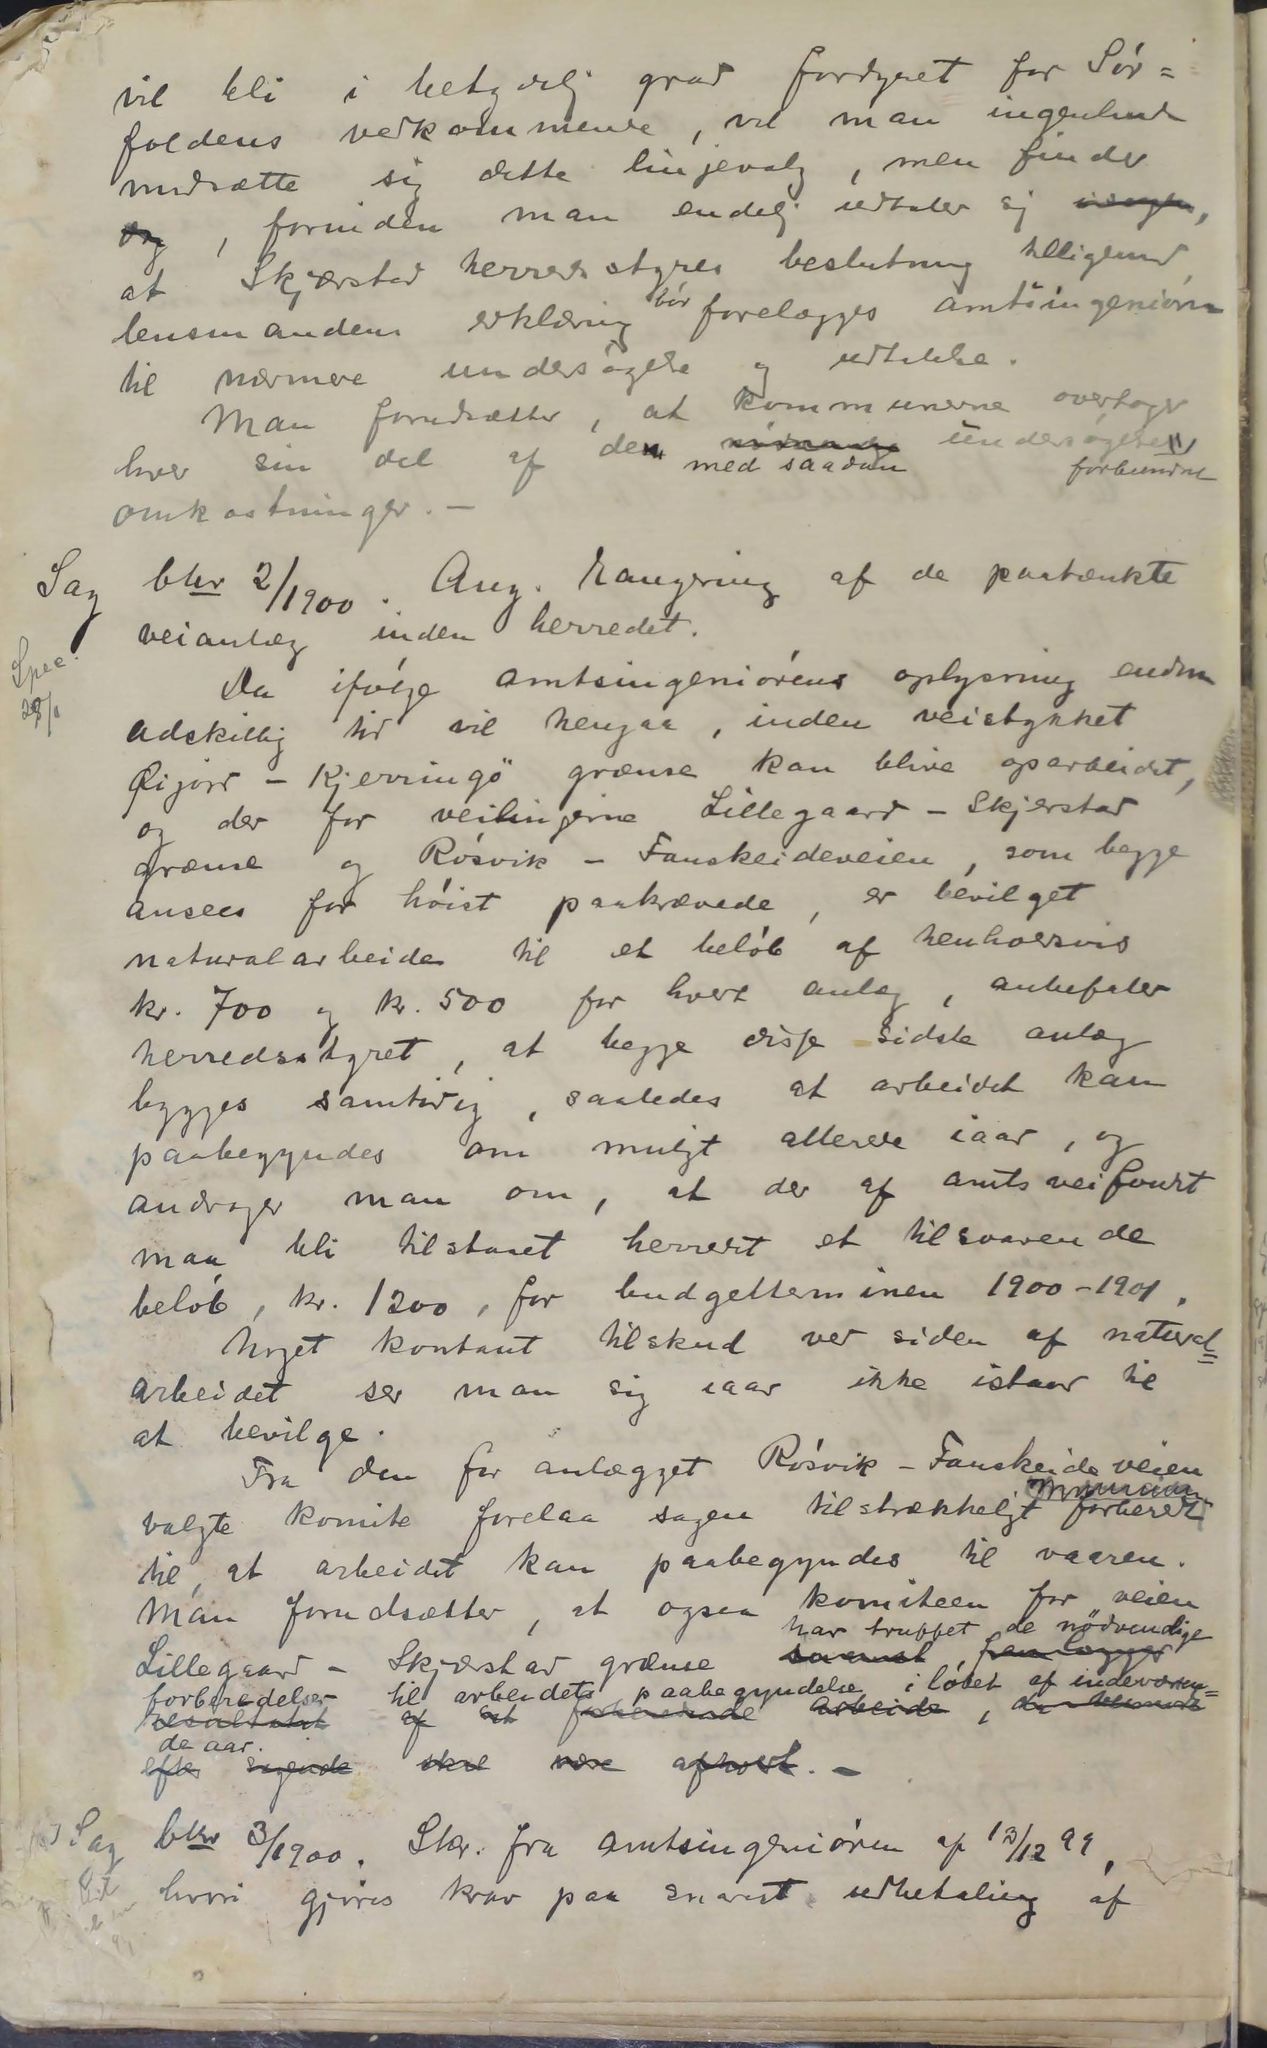 vil bli i betydelig grad fordyret for Sör=
foldens vedkommende, vil man ingenlunde
modsætte sig dette linjevalg, men finder
og, forinden man endelig udtaler sig isagen,
at Skjærstad herredsstyres beslutning tilligemed
lensmandens erklæring bör forelægges amtsingeniören
til nærmere undersögelse og udtalelse.
Man forudsætter, at kommunerne overtager
hver sin del af de nödvendige undersögelser
med saadan forbundne
omkostninger. -
Sag bhr 2/1900. Ang. rangering af de paatænkte
veianlæg inden herredet.
Spec.
Da ifölge amtsingeniörens oplysning endnu
adskillig tid vil hengaa, inden veistykket
- Kjerringö grænse kan blive oparbeidet,
og der for veilinjerne Lillegaard - Skjerstad
grænse og Rösvik - Fauskeideveien, som begge
ansees for höist paakrævede, er bevilget
naturalarbeide til et belöb af henholdsvis
kr. 700 og kr. 500 for hvert anlæg, anbefaler
herredsstyret, at begge disse sidste anlæg
bygges samtidig, saaledes at arbeidet kan
paabegyndes om muligt allerede iaar, og
andrager man om, at der af amtsveifondet
maa bli tilstaaet herredet et tilsvarende
belöb, kr. 1200, for budgetterminen 1900-1901.
Noget kontant tilskud ved siden af natural=
arbeidet ser man sig iaar ikke istand til
at bevilge.
Fra den for anlægget Rösvik - Fauskeideveien
valgte komite forelaa sagen tilstrækkeligt forberedt
til, at arbeidet kan paabegyndes til vaaren.
Man forudsætter, at ogsaa komiteen for veien
har truffet de nödvendige
Lillegaard - Skjærstad grænse snarest fremlægger
forberedelser til arbeidets paabegyndelse i löbet af indeværen=
resultatet af et forberedende arbeide, der
de aar.
efter sigende skal være afholdt. -
Sag bhr 3/1900. Skr. fra amtsingeniören af 13/12 99,
hvori gjöres krav paa snarest udbetaling af